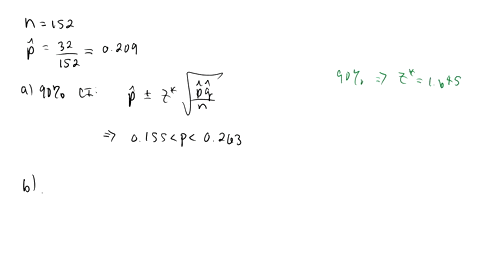 n = 152
p̂ = 32/152 = 0.209
a) 90% CI: p̂ ± z* √(p̂q̂/n)
90% ⇒ z* = 1.645
⇒ 0.155 < p < 0.263
b)